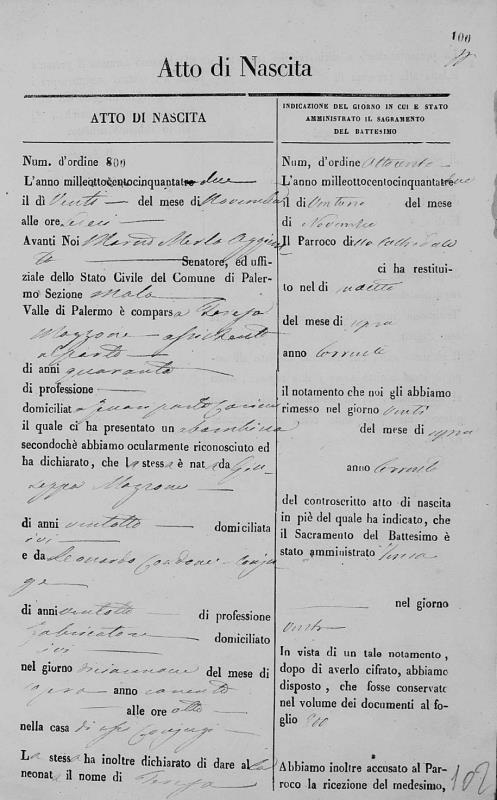 100
Atto di Nascita
ATTO DI NASCITA
Num. d'ordine 800
L'anno milleottocentocinquantatre due
il dì Venti del mese di Novembre
alle ore
Avanti Noi Merlo
Senatore, ed uffi-
ziale dello Stato Civile del Comune di Paler-
mo Sezione Molo
Valle di Palermo è comparsa Teresa
Mazzone assistente
al parto
di anni quaranta
di professione
domiciliat
il quale ci ha presentato una bambina
secondochè abbiamo ocularmente riconosciuto ed
ha dichiarato, che la stessa è nata da Giu-
seppa Mazzone
di anni ventotto domiciliata
ivi
e da Leonardo Conju
ge
di anni ventotto di professione
domiciliato
ivi
nel giorno diciannove del mese di
anno corrente
alle ore otto
nella casa di essi Conjugi
La stessa ha inoltre dichiarato di dare alla
neonata il nome di Teresa
INDICAZIONE DEL GIORNO IN CUI E STATO
AMMINISTRATO IL SAGRAMENTO
DEL BATTESIMO
Num, d'ordine Ottocento
L'anno milleottocentocinquantatre due
il dì Ventuno del mese
di Novembre
Il Parroco di
ci ha restitui-
to nel dì
del mese di
anno Corrente
il notamento che noi gli abbiamo
rimesso nel giorno Venti
del mese di
anno Corrente
del controscritto atto di nascita
in piè del quale ha indicato, che
il Sacramento del Battesimo è
stato amministrato
nel giorno
In vista di un tale notamento,
dopo di averlo cifrato, abbiamo
disposto, che fosse conservato
nel volume dei documenti al fo-
glio 800
Abbiamo inoltre accusato al Par-
roco la ricezione del medesimo,
102